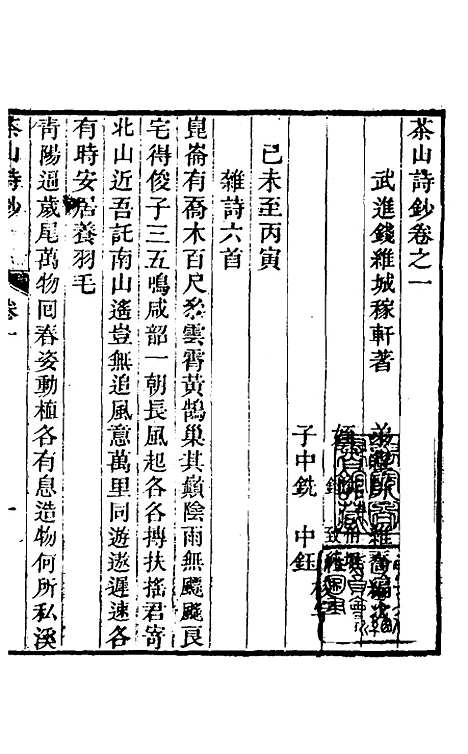 茶山詩鈔卷之一
武進錢維城稼軒著
子中銑　中鈺
己未至丙寅
雜詩六首
崑崙有喬木百尺黎雲霄黃鵠巢其巔陰雨無飄颻良
宅得俊子三五鳴咸韶一朝長風起各各摶扶搖君寄
北山近吾託南山遙豈無追風意萬里同遊遨遲速各
有時安居養羽毛
青陽逼歲尾萬物囘春姿動植各有息造物何所私溪
茶山詩鈔　卷一　一